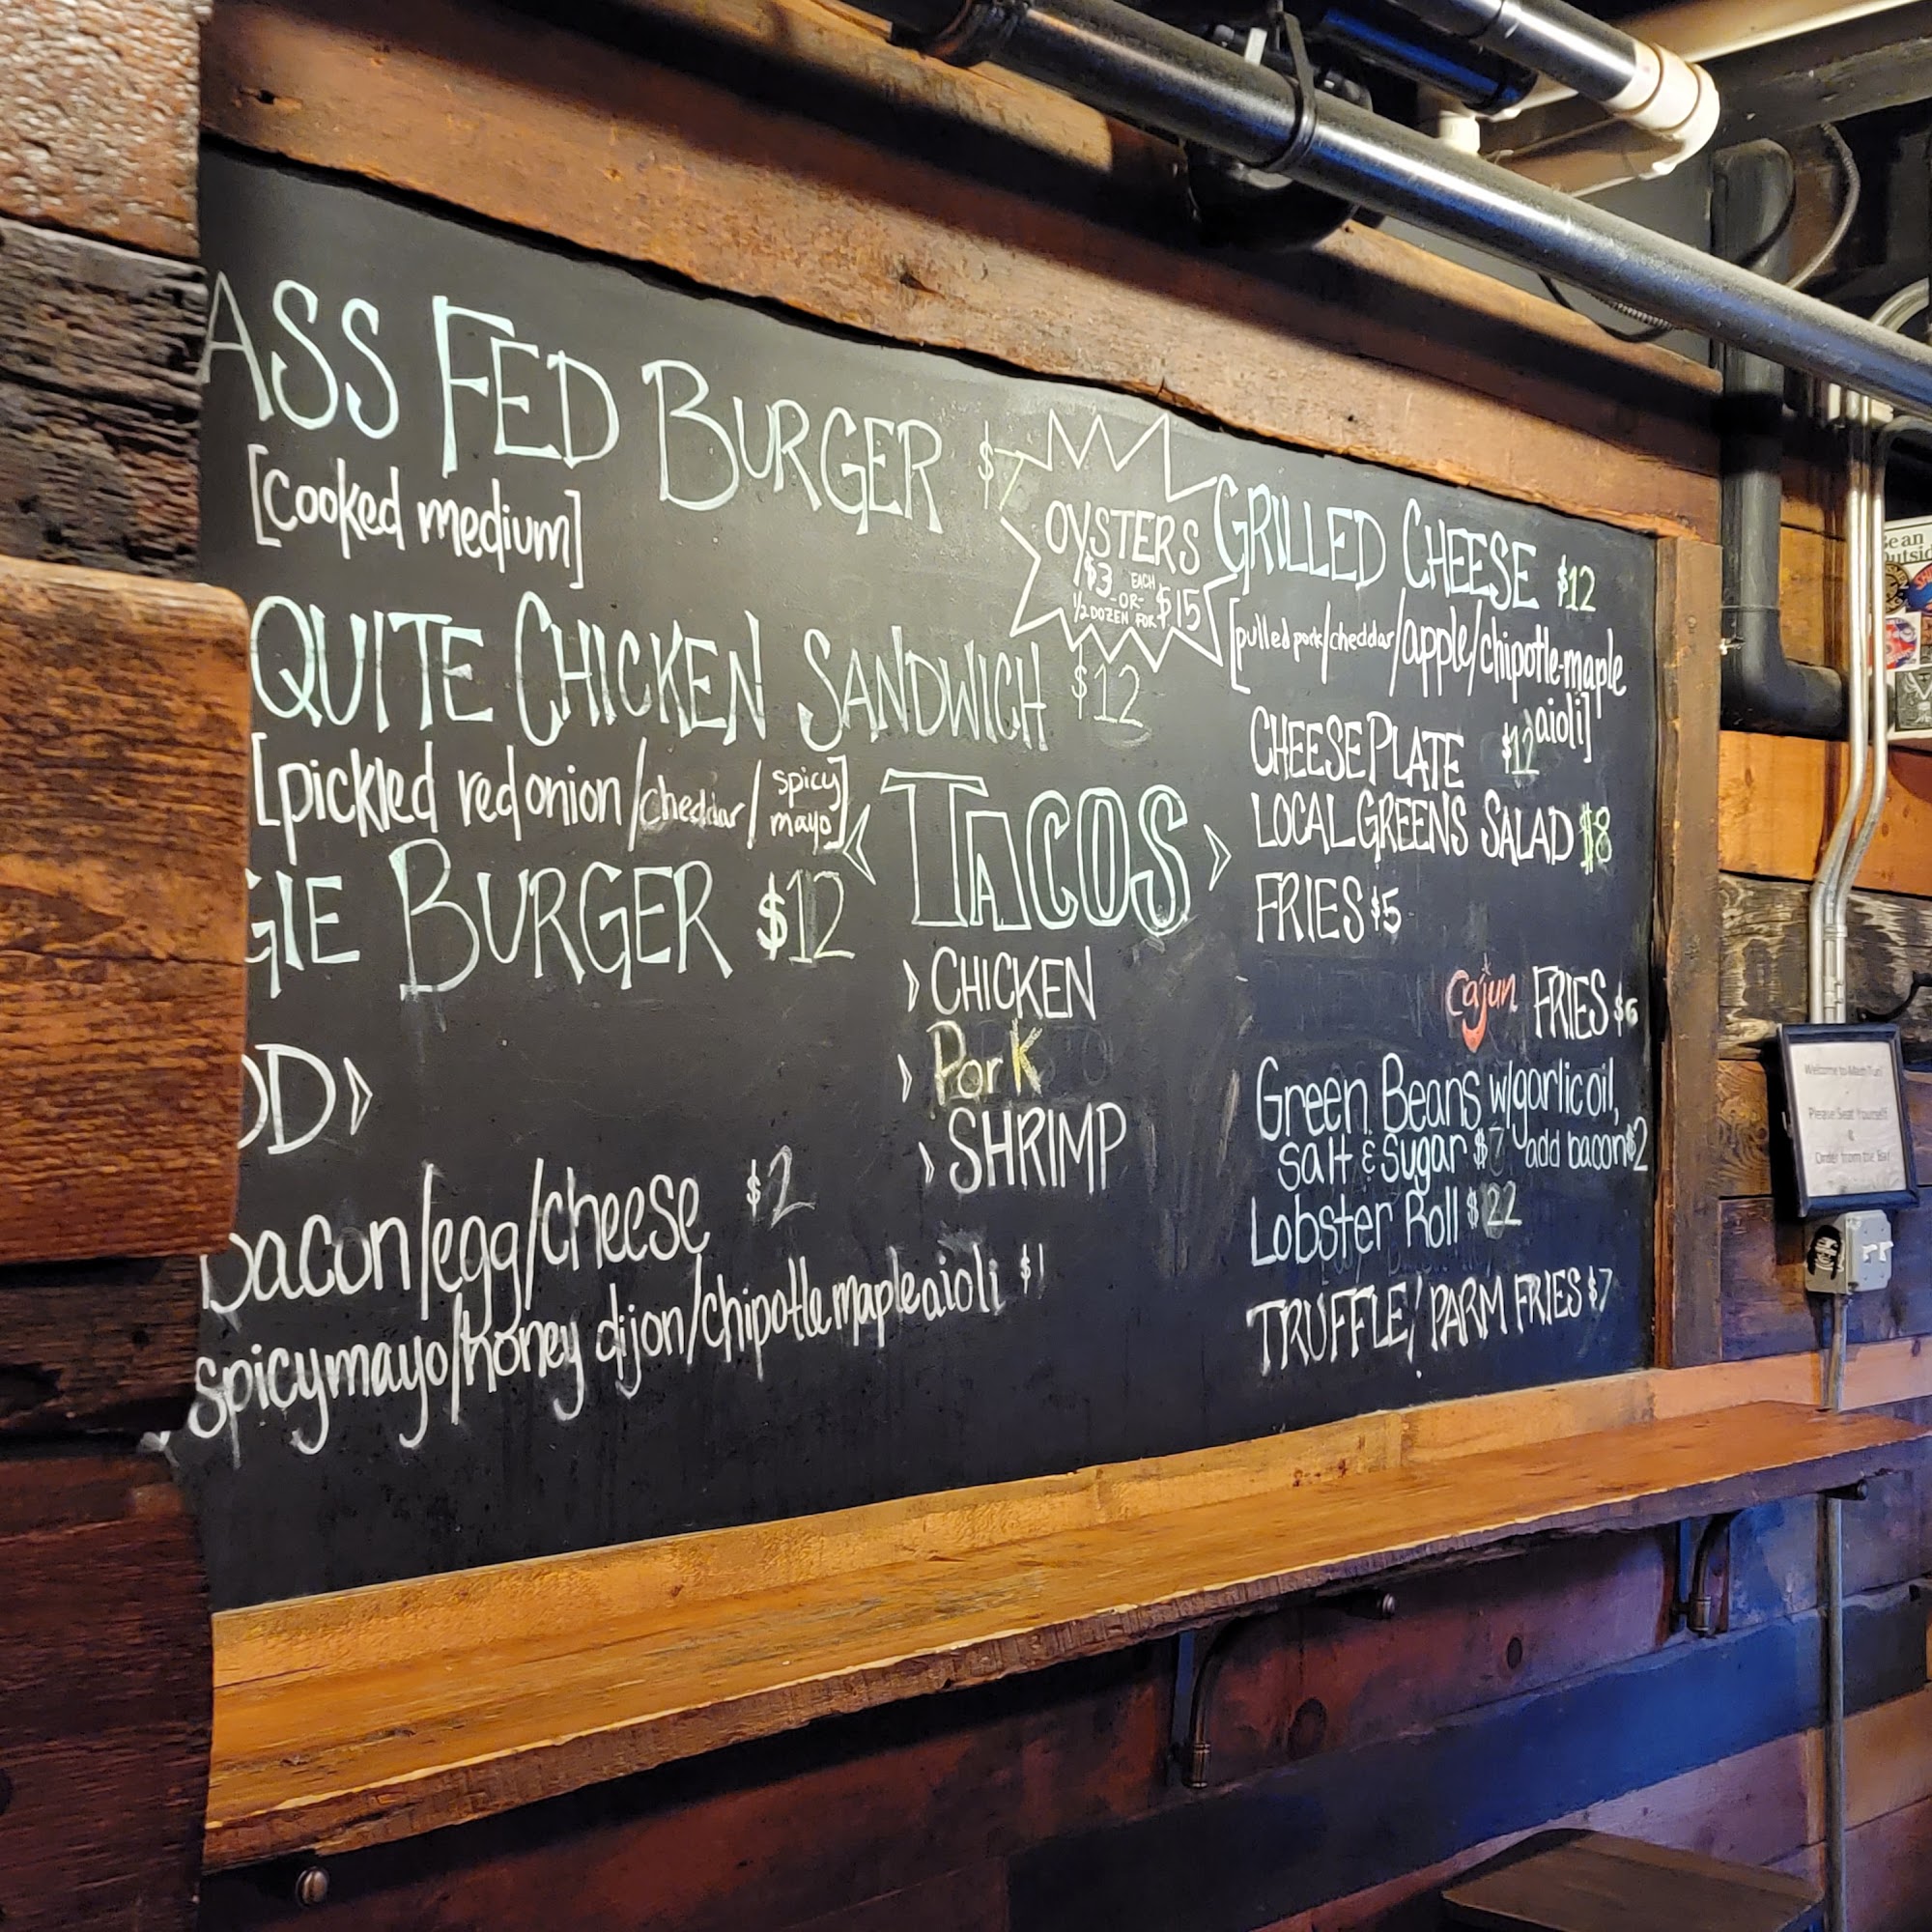 ASS FED BURGER $7
[cooked medium]
QUITE CHICKEN SANDWICH $12
[pickled red onion/cheddar/spicy
mayo]
GIE BURGER $12
OD
bacon/egg/cheese $2
spicymayo/honey dijon/chipotle maple aioli $1
OYSTERS
$3 EACH
-OR-
1/2 DOZEN FOR $15
TACOS
CHICKEN
Pork
SHRIMP
GRILLED CHEESE $12
[pulled pork/cheddar/apple/chipotle-maple
aioli]
CHEESE PLATE $12
LOCAL GREENS SALAD $8
FRIES $5
Cajun FRIES $6
Green Beans w/garlic oil,
salt & sugar $7 add bacon $2
Lobster Roll $22
TRUFFLE/PARM FRIES $7
Please Seat Yourself
&
Order from the Bar